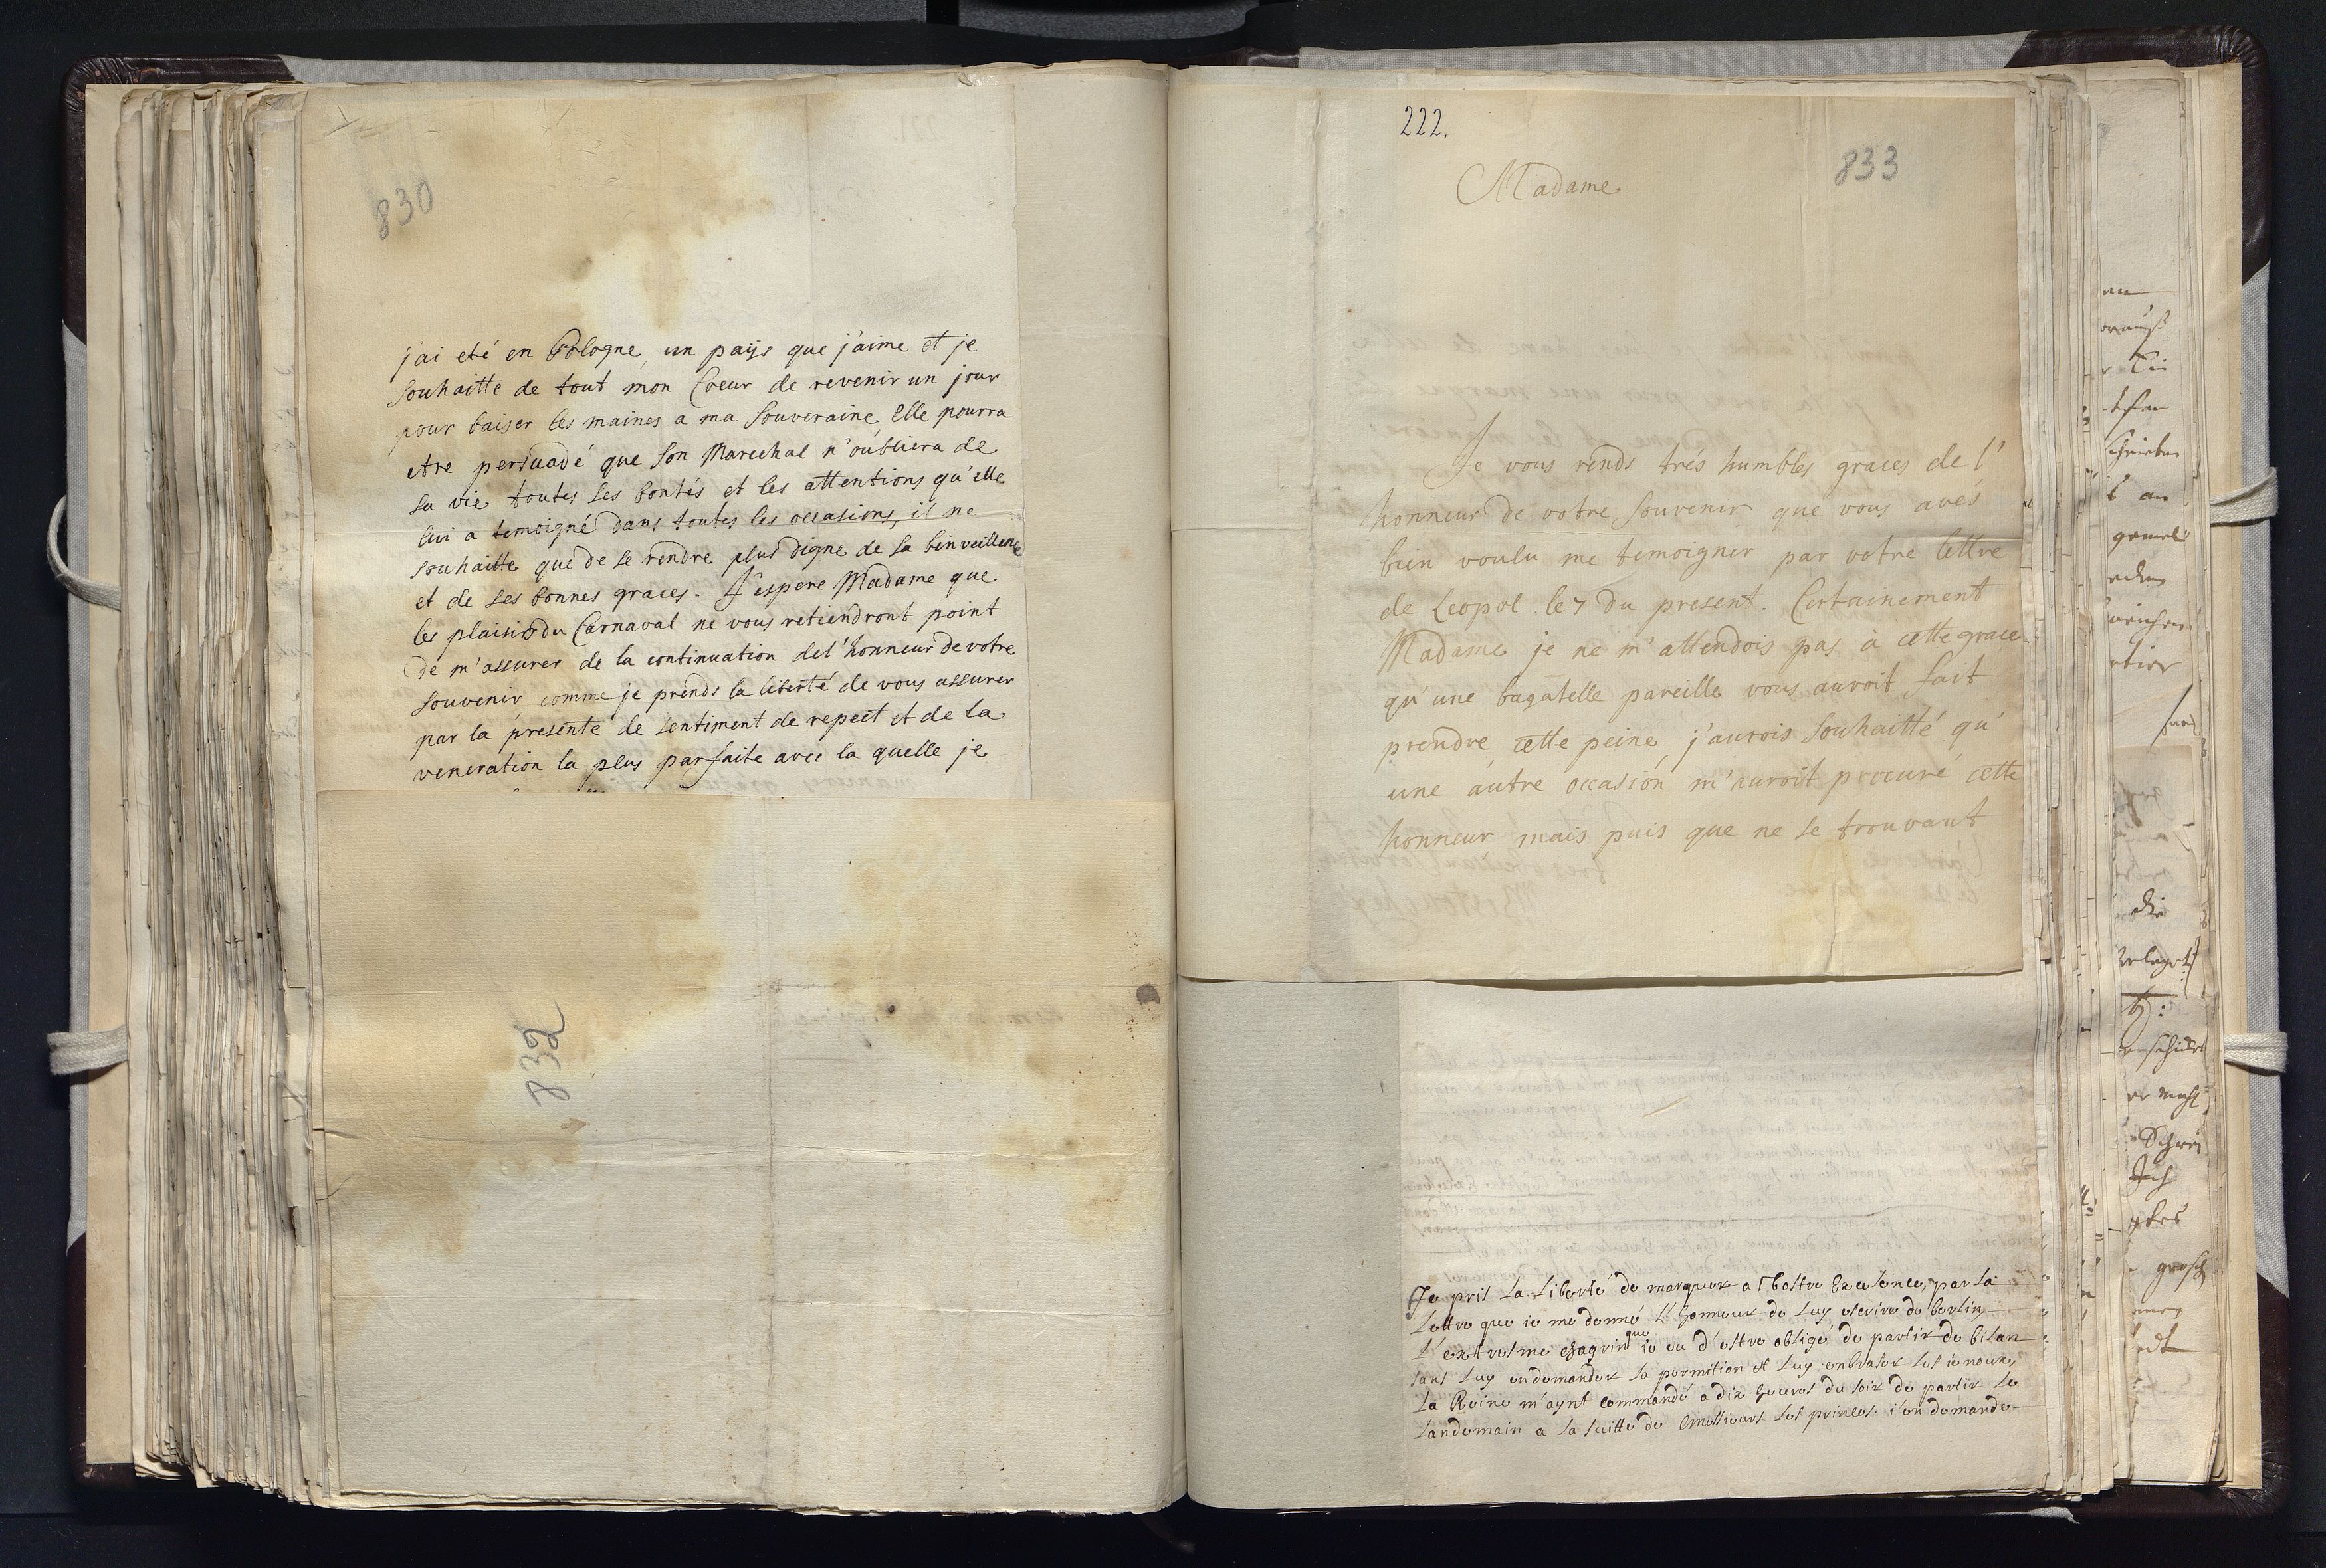 830
j'ai eté en Pologne, un païjs que j'aime et je
souhaitte de tout mon Coeur de revenir un jour
pour baiser les maines a ma Souveraine, Elle pourra
etre persuadé que son Marechal n'oubliera de
sa vie toutes ses bontés et les attentions qu'elle
lui a temoigné dans toutes les occasions, il ne
souhaitte que de se rendre plus digne de sa binveillence
et de ses bonnes graces. J'espere Madame que
les plaisirs du Carnaval ne vous retiendront point
de m'assurer de la continuation del'honneur de votre
souvenir, comme je prends la liberté de vous assurer
par la presente le sentiment de repect et de la
veneration la plus parfaite avec la quelle je
832
222.
833
Madame
Je vous rends trés humbles graces de l'
honneur de votre souvenir que vous avés
bien voulu me temoigner par votre lettre
de Leopol le 7 du present. Certainement
Madame je ne m'attendois pas à cette grace
qu'une bagatelle pareille vous auroit fait
prendre cette peine, j'aurois souhaitté qu'
une autre occasion m'auroit procuré cette
honneur, mais puis que ne se trouvant
Je pris La Liberté de marquer a Vostre Exelence, par La
Lettre que ie me donné L'honneur de Luy escrire de berlin
L'extresme chagrin que ie eu d'estre obligé de partir de bilan
sans Luy en demander La permition et Luy enbraser Les ienoux,
La Reine m'aynt commandé a dix heures du soir de partir Le
Landemain a La suitte de Messieurs Les princes. i'en demande
an
die